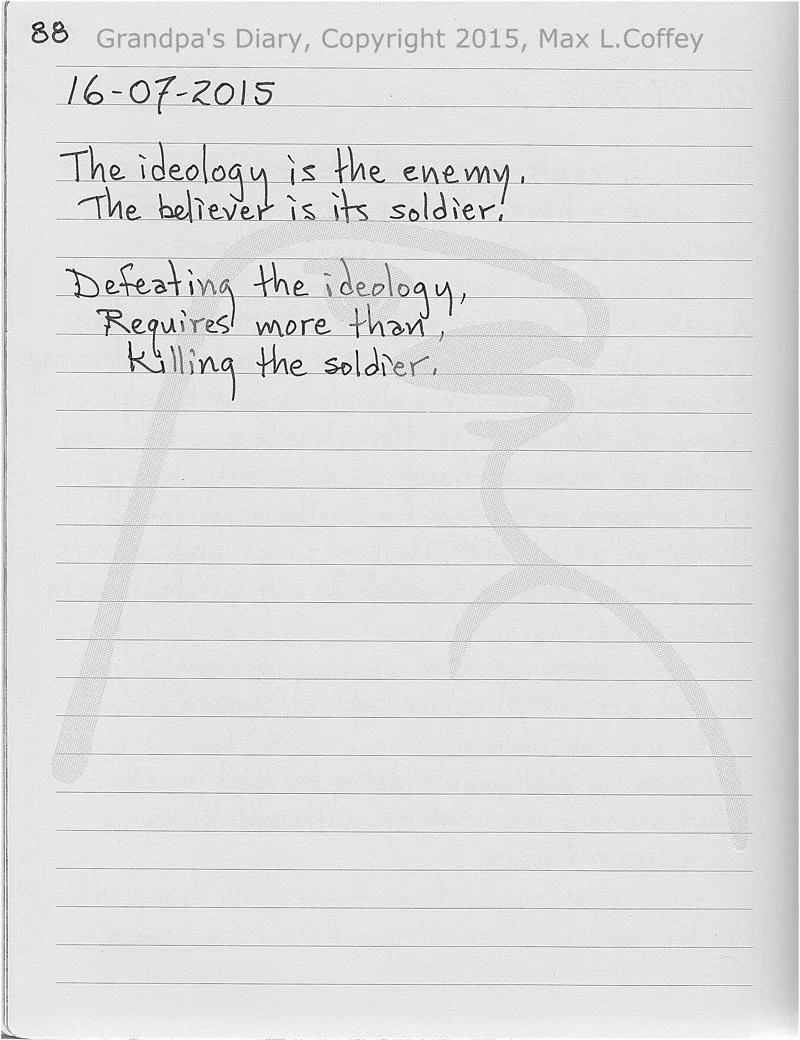 88 Grandpa's Diary, Copyright 2015, Max L.Coffey
16-07-2015
The ideology is the enemy.
The believer is its soldier!
Defeating the ideology,
Requires more than,
killing the soldier.